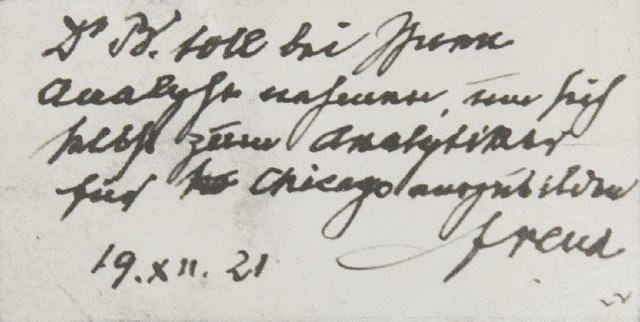 Dr B. soll bei Ihnen
Analyse nehmen, um sich
selbst zum Analytiker
für Chicago auszubilden
Freud
19.XII.21